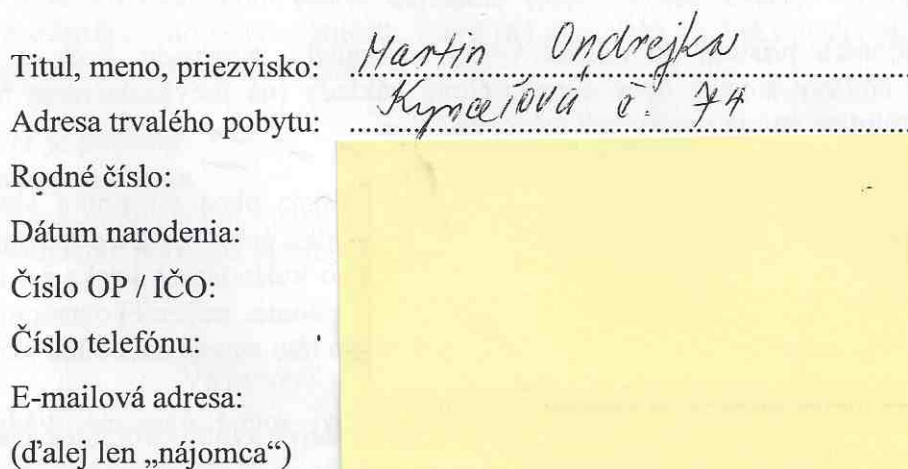 Titul, meno, priezvisko: Martin Ondrejka
Adresa trvalého pobytu: Kynceľová č. 74
Rodné číslo:
Dátum narodenia:
Číslo OP / IČO:
Číslo telefónu:
E-mailová adresa:
(ďalej len „nájomca“)